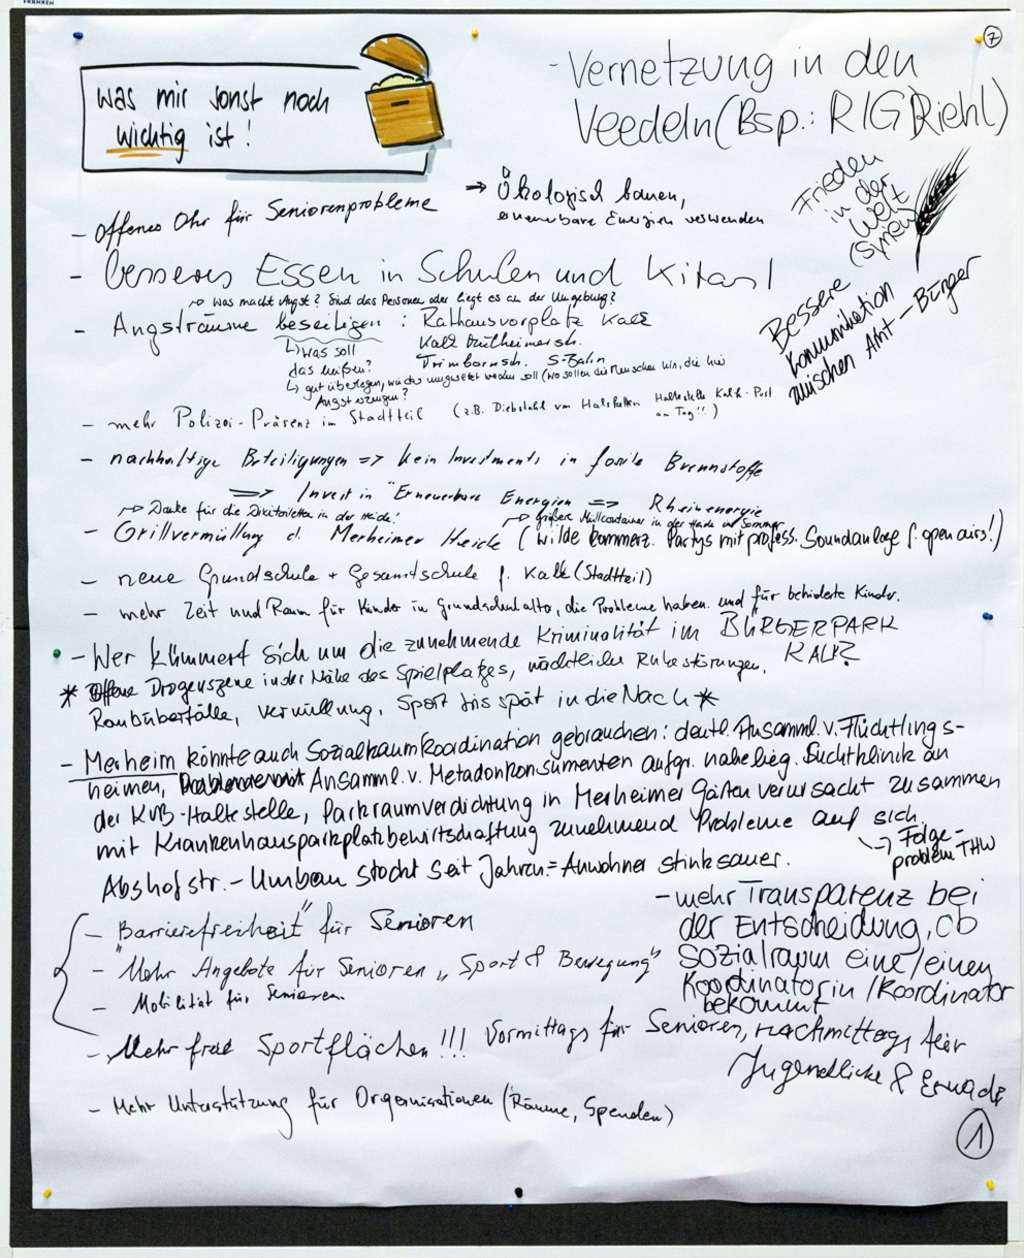 FRANKEN
7
Was mir sonst noch
wichtig ist!
- Vernetzung in den
Veedeln (Bsp.: RIG Riehl)
- Offenes Ohr für Seniorenprobleme
⇒ Ökologisch bauen,
erneuerbare Energien verwenden
Frieden
in der
Welt
(Syrien)
- besseres Essen in Schulen und Kitas!
Bessere
Kommunikation
zwischen Amt - Bürger
↳ Was macht Angst? Sind das Personen oder liegt es an der Umgebung?
- Angsträume beseitigen: Rathausvorplatz Kalk
↳ Was soll
das heißen?
Kalk Mülheimerstr.
Trimbornstr. S-Bahn
↳ gut überlegen, was da umgesetzt werden soll (wo sollen die Menschen hin, die hier
Angst erzeugen?
- mehr Polizei-Präsenz im Stadtteil (z.B. Diebstahl von Halsketten Haltestelle Kalk-Post
am Tag!!)
- nachhaltige Beteiligungen => kein Investments in fossile Brennstoffe
=> Invest in "Erneuerbare Energien => Rheinenergie
↳ Danke für die in der Heide!
↳ größere Müllcontainer in der Heide im Sommer
- Grillvermüllung d. Merheimer Heide (wilde kommerz. Partys mit profess. Soundanlage f. open airs!)
- neue Grundschule + Gesamtschule f. Kalk (Stadtteil)
- mehr Zeit und Raum für Kinder in Grundschulalter, die Probleme haben und für behinderte Kinder.
- Wer kümmert sich um die zunehmende Kriminalität im BÜRGERPARK
KALK?
* Offene Drogenszene in der Nähe des Spielplatzes, nächtliche Ruhestörungen,
Raubüberfälle, Vermüllung, Sport bis spät in die Nach *
- Merheim könnte auch Sozialraumkoordination gebrauchen: deutl. Ansamml. v. Flüchtlings-
heimen, Ansamml. v. Metadonkonsumenten aufgr. nahelieg. Suchtklinik an
der KVB-Haltestelle, Parkraumverdichtung in Merheimer Gärten verursacht zusammen
mit Krankenhausparkplatzbewirtschaftung zunehmend Probleme auf sich.
↳ Folge-
problem THW
Abshofstr. - Umbau stockt seit Jahren = Anwohner stinksauer.
- mehr Transparenz bei
der Entscheidung, ob
Sozialraum eine/einen
Koordinatorin/Koordinator
bekommt
- "Barrierefreiheit" für Senioren
- "Mehr Angebote für Senioren "Sport & Bewegung"
- Mobilität für Senioren.
- Mehr freie Sportflächen!!! Vormittags für Senioren, nachmittags für
Jugendliche &
- Mehr Unterstützung für Organisationen (Räume, Spenden)
1